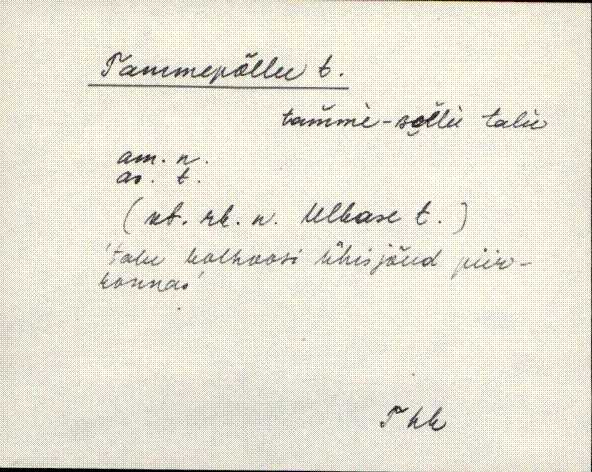 Tammepõllu t.
tam̆mè-sõl̆lù talu
am. n.
as. t.
(vt. rk. n. Ulkase t.)
'talu kolhoosi Ühisjõud piir-
konnas'
Tkk